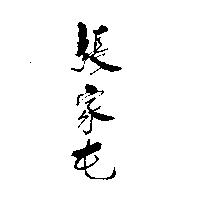 張家屯